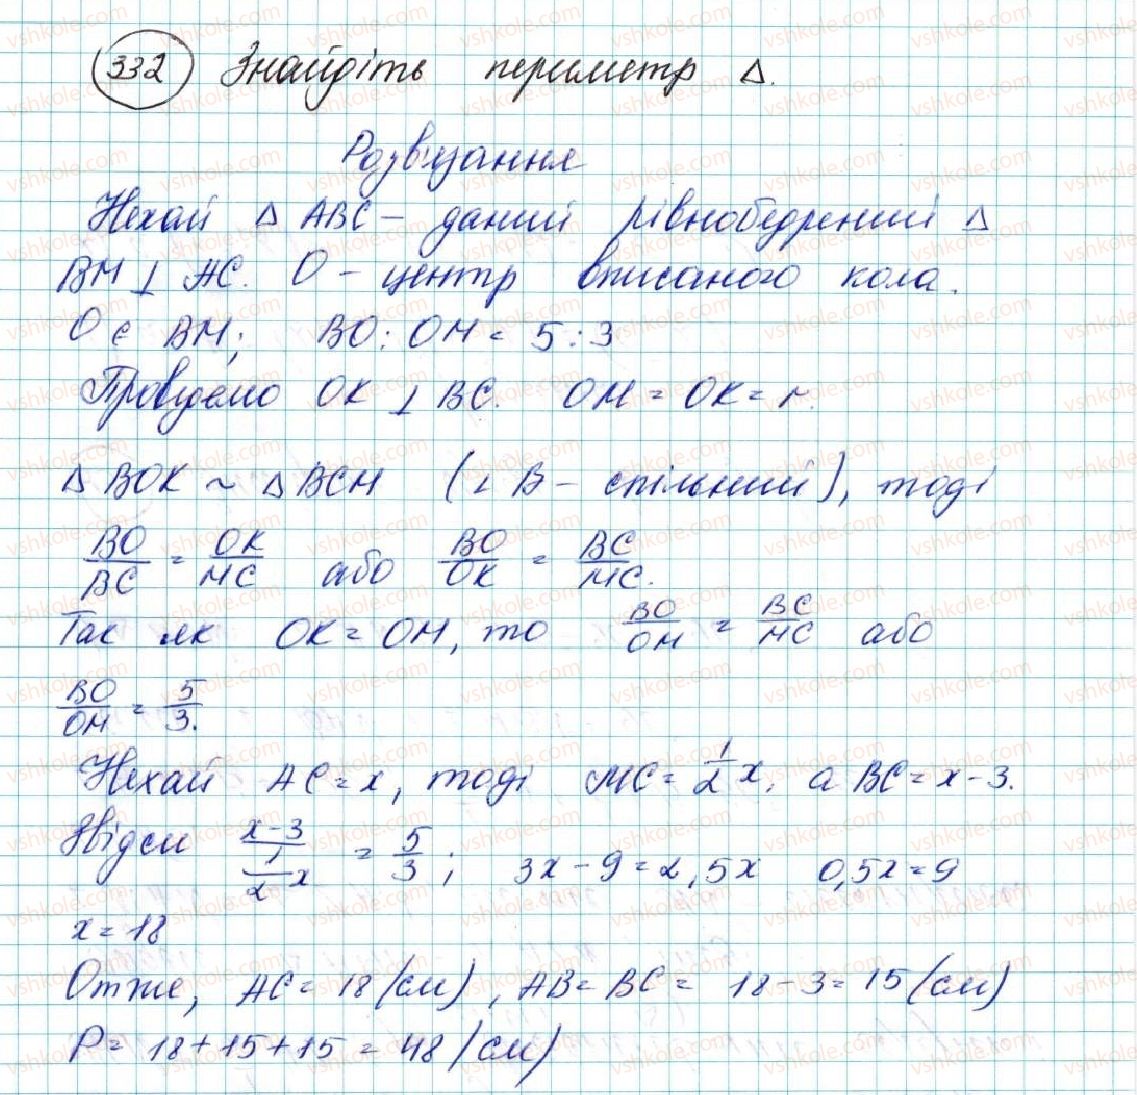 332 Знайдіть периметр Δ.
Розв'язання
Нехай Δ ABC – даний рівнобедрений Δ
BM ⊥ AC. O – центр вписаного кола.
O є BM; BO : OM = 5 : 3
Проведемо OK ⊥ BC. OM = OK = r.
Δ BOK ~ Δ BCM (∠ B – спільний), тоді
BO/BC = OK/MC або BO/OK = BC/MC.
Так як OK = OM, то BO/OM = BC/MC або
BO/OM = 5/3.
Нехай AC = x, тоді MC = 1/2 x, а BC = x – 3.
Звідси (x – 3)/(1/2 x) = 5/3; 3x – 9 = 2,5x 0,5x = 9
x = 18
Отже, AC = 18 (см), AB = BC = 18 – 3 = 15 (см)
P = 18 + 15 + 15 = 48 (см)